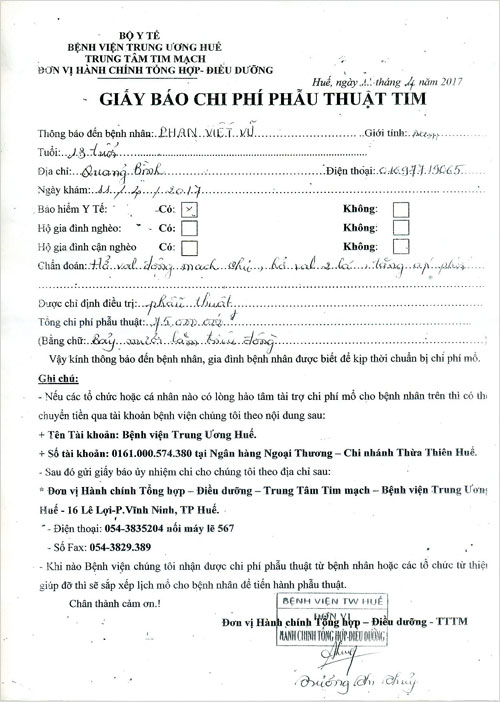 BỘ Y TẾ
BỆNH VIỆN TRUNG ƯƠNG HUẾ
TRUNG TÂM TIM MẠCH
ĐƠN VỊ HÀNH CHÍNH TỔNG HỢP- ĐIỀU DƯỠNG
Huế, ngày 11 tháng 4 năm 2017
GIẤY BÁO CHI PHÍ PHẪU THUẬT TIM
Thông báo đến bệnh nhân: PHAN VIẾT VŨ Giới tính: nam
Tuổi: 13 tuổi
Địa chỉ: Quảng Bình Điện thoại: 01697719065
Ngày khám: 11/4/2017
Bảo hiểm Y Tế: Có: x Không:
Hộ gia đình nghèo: Có: Không:
Hộ gia đình cận nghèo Có: Không:
Chẩn đoán: Hở van động mạch chủ, hở van 2 lá, tăng áp phổi
Được chỉ định điều trị: phẫu thuật
Tổng chi phí phẫu thuật: 75.000.000đ
(Bằng chữ: Bảy mươi lăm triệu đồng
Vậy kính thông báo đến bệnh nhân, gia đình bệnh nhân được biết để kịp thời chuẩn bị chi phí mổ.
Ghi chú:
- Nếu các tổ chức hoặc cá nhân nào có lòng hảo tâm tài trợ chi phí mổ cho bệnh nhân trên thì có thể
chuyển tiền qua tài khoản bệnh viện chúng tôi theo nội dung sau:
+ Tên Tài khoản: Bệnh viện Trung Ương Huế.
+ Số tài khoản: 0161.000.574.380 tại Ngân hàng Ngoại Thương – Chi nhánh Thừa Thiên Huế.
- Sau đó gửi giấy báo ủy nhiệm chi cho chúng tôi theo địa chỉ sau:
* Đơn vị Hành chính Tổng hợp – Điều dưỡng – Trung Tâm Tim mạch – Bệnh viện Trung Ương
Huế - 16 Lê Lợi-P.Vĩnh Ninh, TP Huế.
- Điện thoại: 054-3835204 nối máy lẽ 567
- Số Fax: 054-3829.389
- Khi nào Bệnh viện chúng tôi nhận được chi phí phẫu thuật từ bệnh nhân hoặc các tổ chức từ thiện
giúp đỡ thì sẽ sắp xếp lịch mổ cho bệnh nhân để tiến hành phẫu thuật.
Chân thành cảm ơn.!
BỆNH VIỆN TW HUẾ
ĐƠN VỊ
Đơn vị Hành chính Tổng hợp – Điều dưỡng - TTTM
HÀNH CHÍNH TỔNG HỢP-ĐIỀU DƯỠNG
Trương Thị Thủy